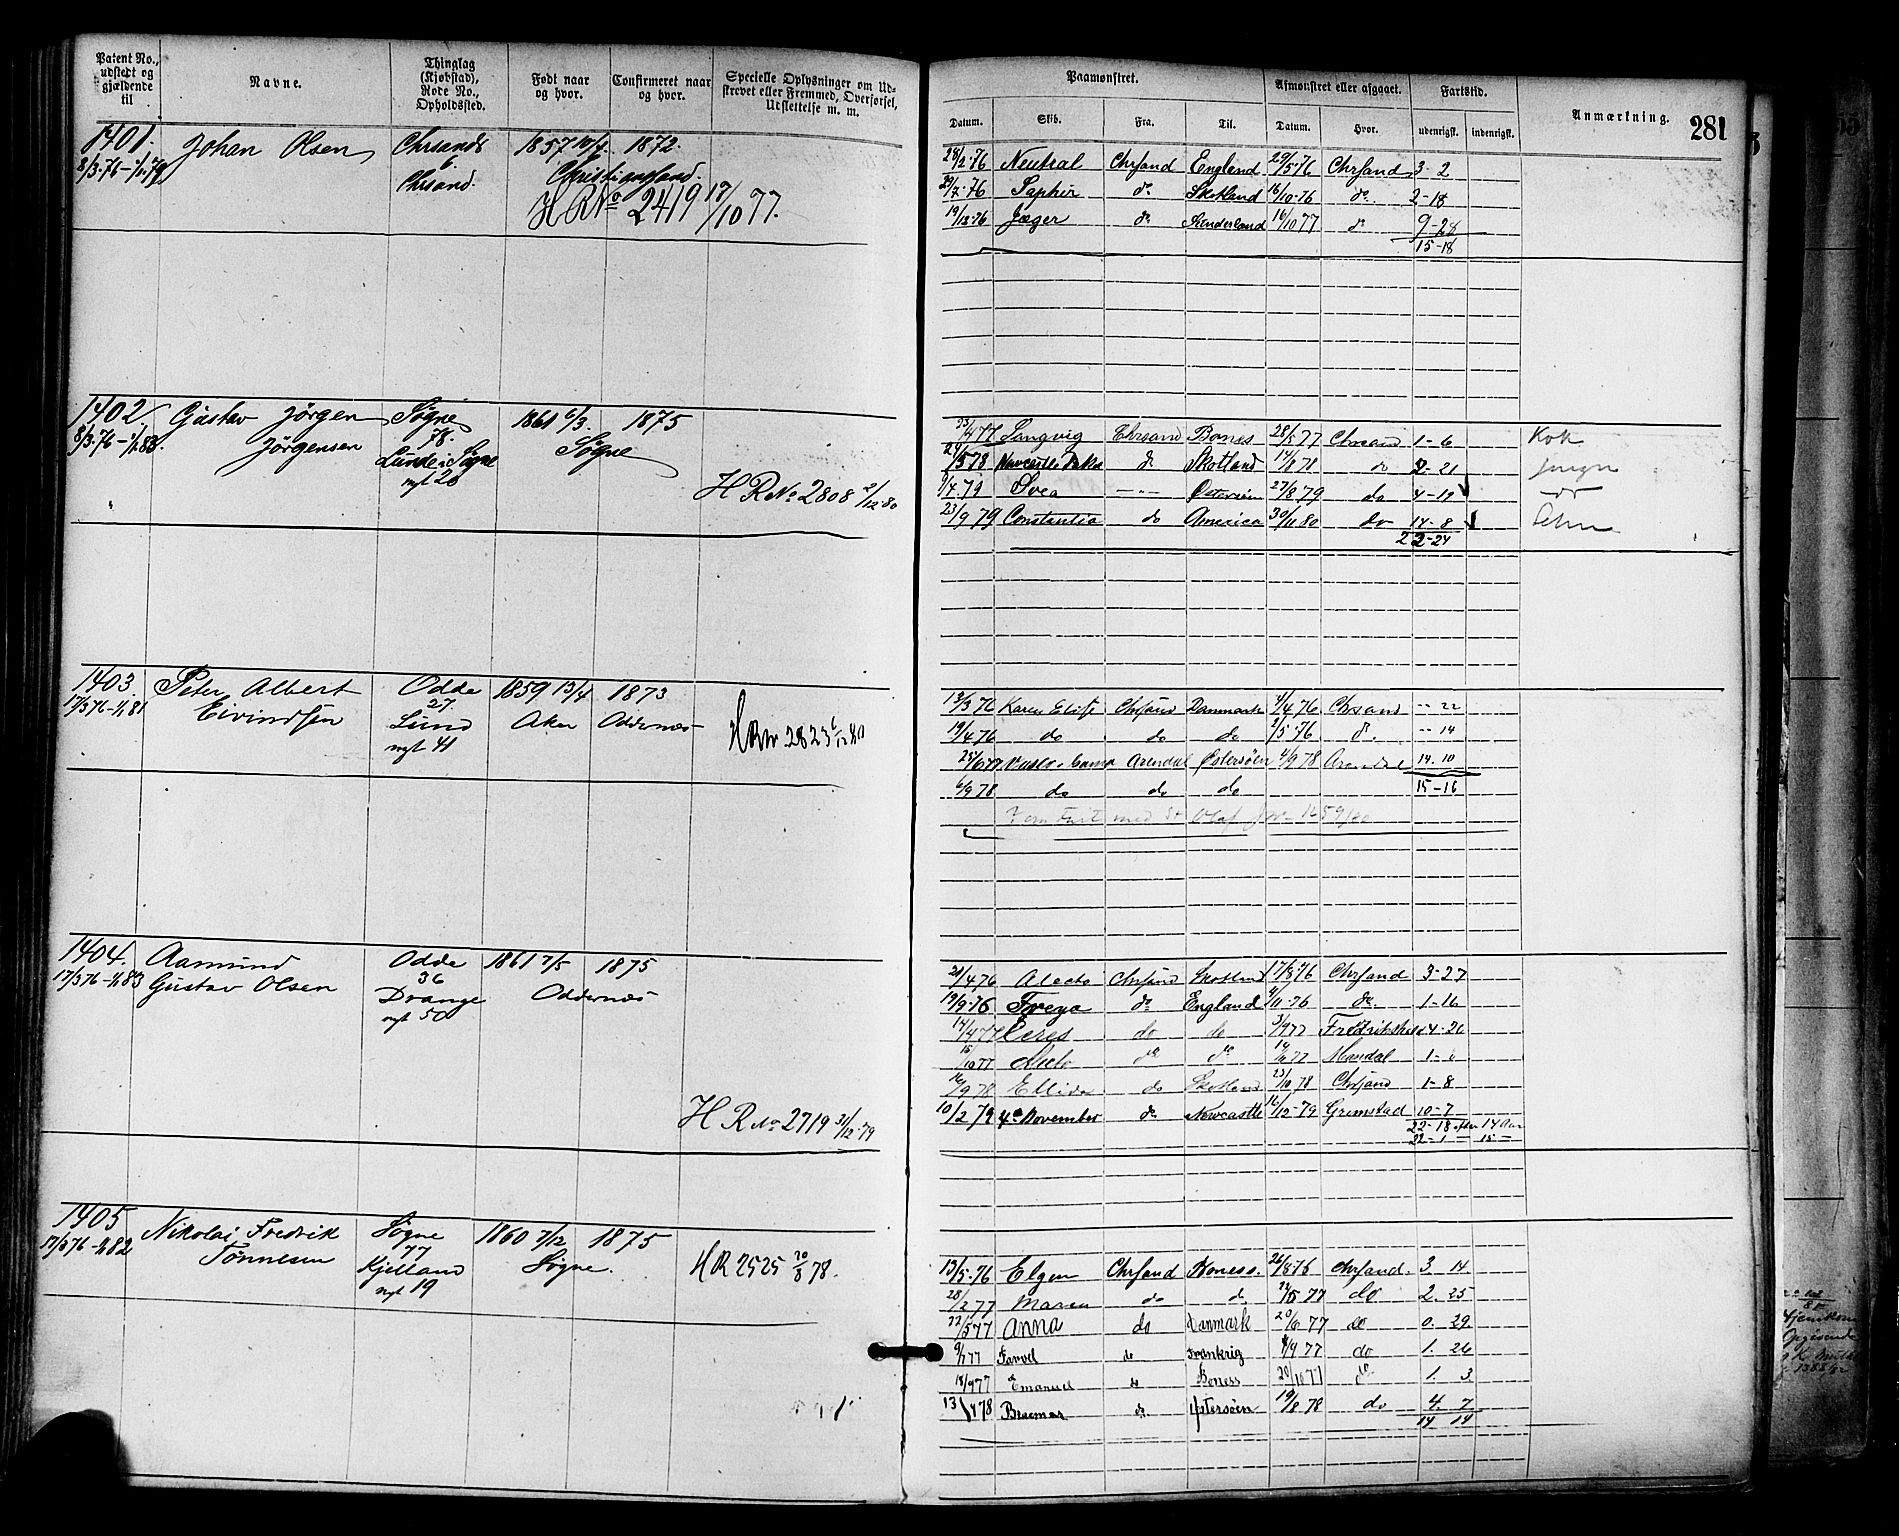 Patent No., udstedt og gjældende til
Navne.
Thinglag (Kjøbstad), Rode No., Opholdssted.
Født naar og hvor.
Confirmeret naar og hvor.
Specielle Oplysninger om Udskrevet eller Fremmed, Overførsel, Udslettelse m. m.
Paamønstret.
Afmønstret eller afgaaet.
Fartstid.
Anmærkning.
281
Datum. Skib. Fra. Til. Datum. Hvor. udenrigsk. indenrigsk.
1401. Johan Olsen Chrsands 1857 10/4 1872.
8/3.76 - 1/1.79 6. Christiansand.
Chrsand.
H R No 2419 17/10 77.
28/2.76 Neutral Chrsand England 29/5 76 Chrsand 3 - 2
29/7.76 Saphir do Skotland 16/10.76 do. 2 - 18
19/12.76 Jæger do Sunderland 16/10 77 do 9 - 28
15 - 18
1402. Gustav Jörgen Søgne 1861 6/3. 1875
8/3.76 - 1/1.83. Jörgensen 78. Søgne
Lunde i Søgne
nyt 28
H R No 2808 2/12 80
Langvig Chrsand Bones 28/5 77 Chrsand 1 - 6 Kok
578 Newcastle do Skotland 78 do 21 Jungm
79 Svea - " - Østersøen 27/8 79 do 4 - 19 do
23/9 79 Constantia do America 30/11 80 do 14 - 8
22 - 24
1403. Peter Albert Odde 1859 13/4 1873
17/3 76 - 1/1 81 Eivindsen 27. Aker Oddernæs
Lund
nyt 41
H R nr 2823 6/12 80
13/3 76 Karen Elise Chrsand Danmark 4/4 76 Chrsand - - 22
19/4 76 do do do 2/5.76 do. - - 14
Arendal Østersøen 4/9 78 Arendal 14. 10
6/9 78. do do do 15 - 16
med St Olaf
1404. Aamund Odde 1861 7/5 1875
17/3 76 - 1/1 83 Gustav Olsen 36 Oddernæs
Drange
nyt 50
H R No 2719 31/12.79
28/4 76 Alecto Chrsand Skotland 17/8.76 Chrsand 3 - 27
19/9.76 Freya do England 10.76 do. 1 - 16
14/4 77 Ceres do do 3/9 77 4 - 20
15/10 77 Alecto do do 77 Mandal 1 -
9 78 Ellida do Skotland 23/10 78 Chrsand 1 - 8
10/2 79 4de November do Newcastle 16/12 - 79 Grimstad 10 - 7
22 - 18 efter 14 Aar
22 - 1 - 15 -
1405 Nikolai Fredrik Søgne 1860 7/12 1875
17/3 76 - 1/1 82 Tönnesen 77 Søgne.
Kjelland
nyt 19
H R 2525 20/8 78.
13/5.76 Elgen Chrsand Boness. 26/8 76 Chrsand. 3. 14.
28/2 77 Maren do do 5 77 do 2. 25
22/5 77 Anna do Danmark 20/6 77 do 0. 29
9/7 77 Farvel do Frankrig 9 77 do 1. 26
18/9 77 Emanuel do Boness 20/10 77 do 1. 3
13/4 78 Braemar do Østersøen 19/8 78 do 4. 7
14 14